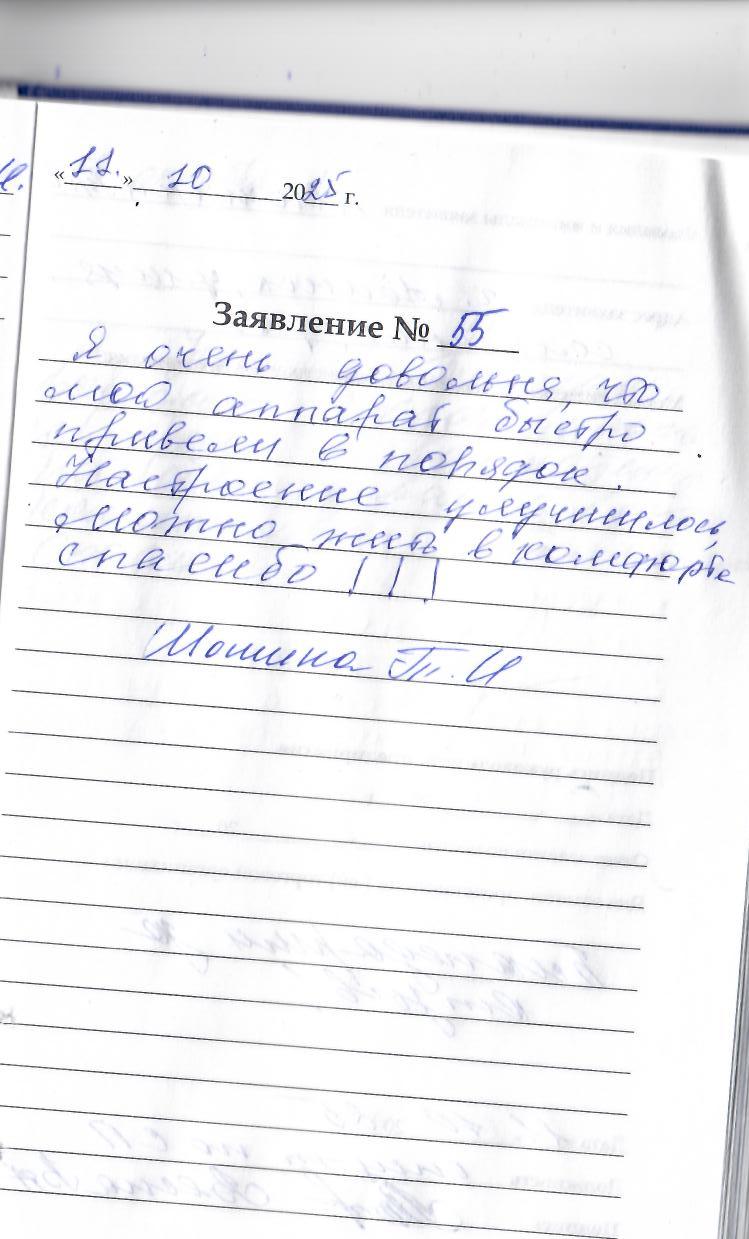 «11.» 10 2025 г.
Заявление № 55
Я очень довольна, что
мой аппарат быстро
привели в порядок.
Настроение улучшилось,
можно жить в комфорте
спасибо !!!
Т.И